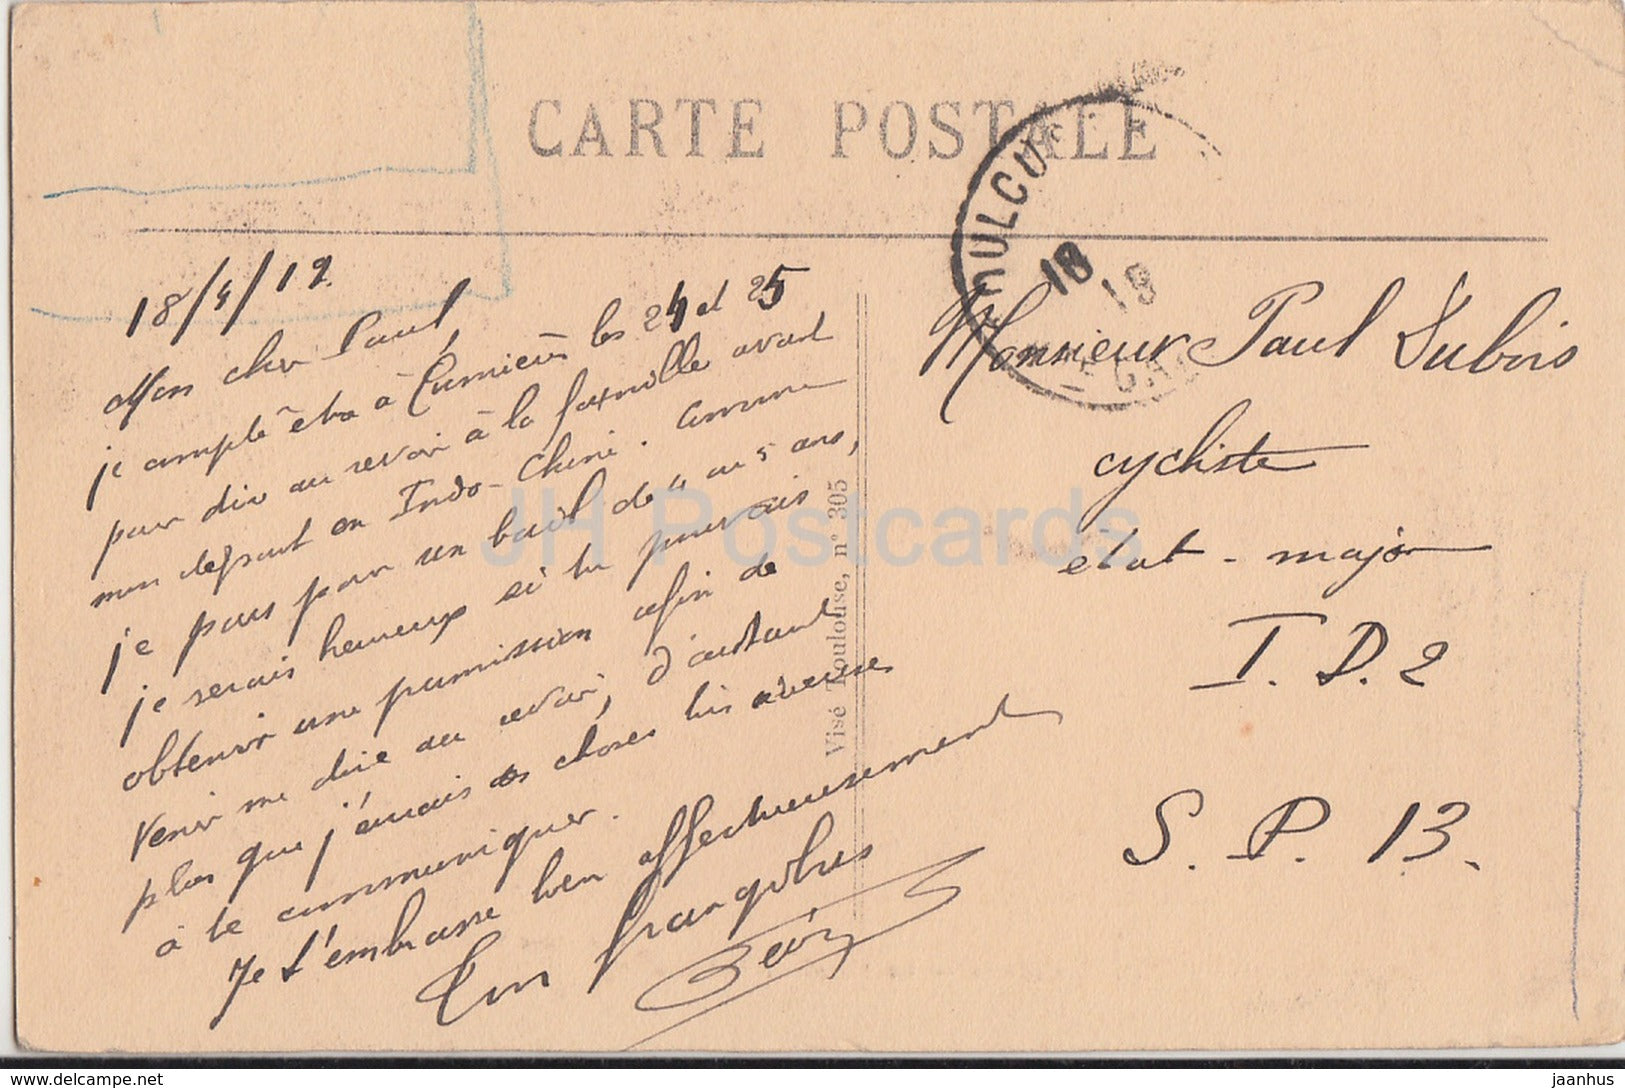 CARTE POSTALE
18/4/19
Mon cher Paul,
je compte être à Cumières les 24 et 25
pour dire au revoir à la famille avant
mon départ en Indo-Chine. Comme
je pars pour un bail de 4 ou 5 ans,
je serais heureux si tu pouvais
obtenir une permission afin de
venir me dire au revoir, d'autant
plus que j'aurais des choses
à te communiquer.
Je t'embrasse bien affectueusement
Ton
Visé Toulouse, n° 305
Monsieur Paul Dubois
cycliste
etat-major
I. D. 2
S. P. 13.
18
19
JH Postcards
delcampe.net
jaanhus